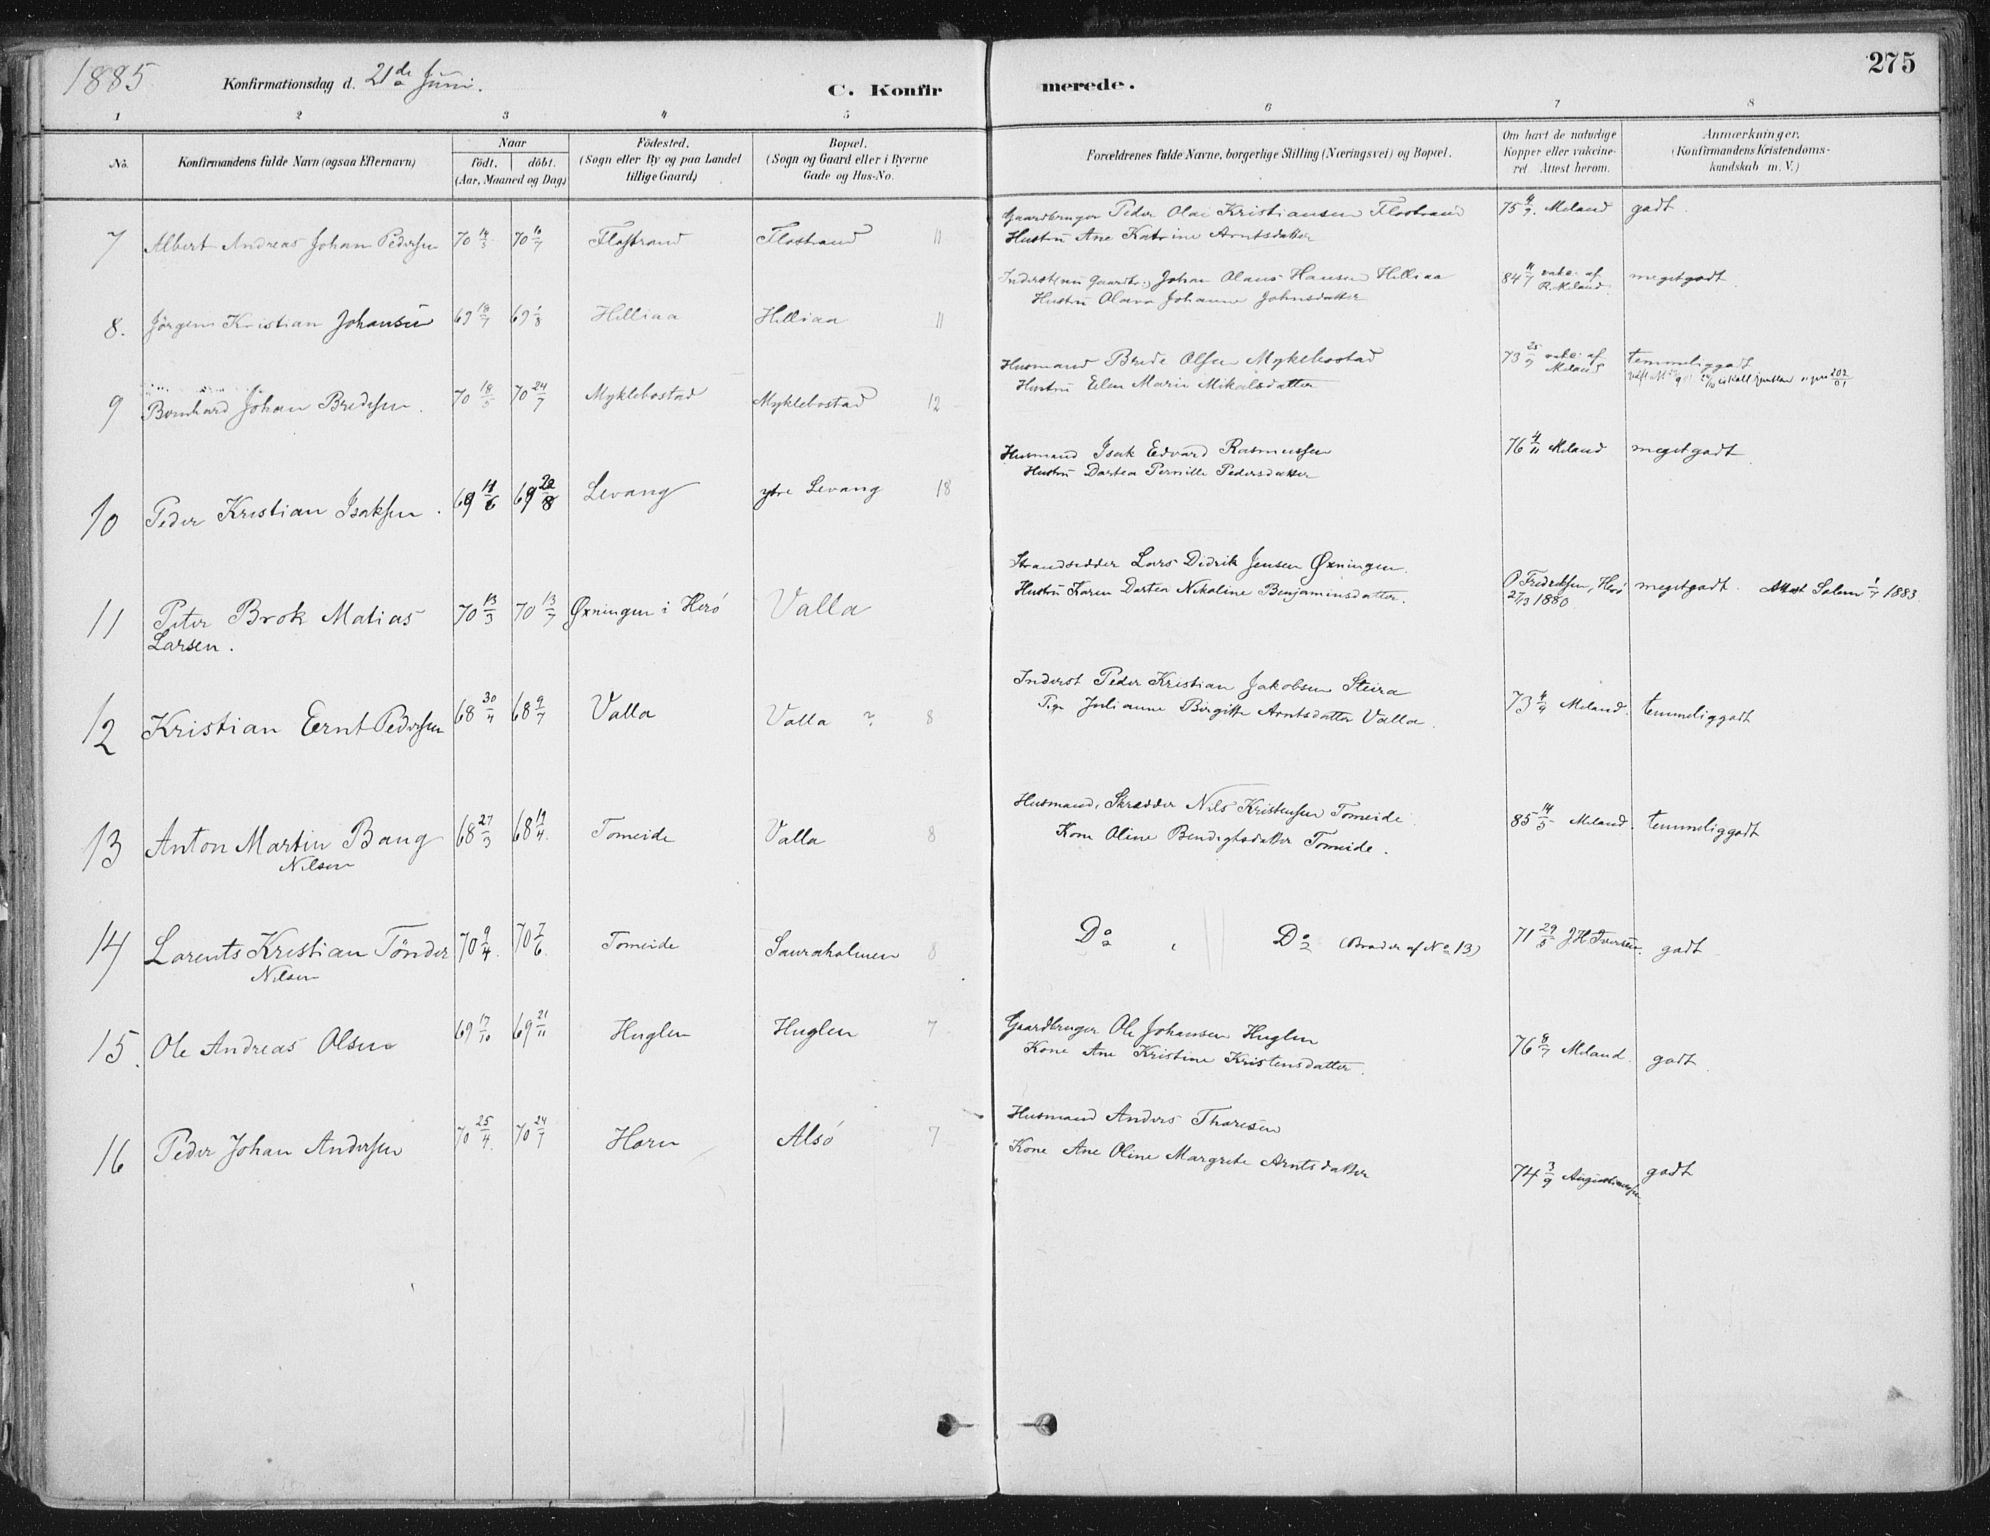 1885 Konfirmationsdag d. 21de Juni. C. Konfirmerede. 275
1 2 3 4 5 6 7 8
No. Konfirmandens fulde Navn (ogsaa Efternavn) Naar födt. döbt. (Aar, Maaned og Dag) Födested. (Sogn eller By og paa Landet tillige Gaard) Bopæl. (Sogn og Gaard eller i Byerne Gade og Hus-No. Forældrenes fulde Navne, borgerlige Stilling (Næringsvei) og Bopæl. Om havt de naturlige Kopper eller vakcineret Attest herom. Anmærkninger. (Konfirmandens Kristendomskundskab m. V.)
Gaardbruger Peder Olai Kristiansen Flostrand 75 Meland godt
7 Albert Andreas Johan Pedersen 70 70 Flostrand Flostrand 11 Hustru Ane Katrine Arntsdatter
Inderst (nu Gaardbr.) Johan Olaus Hansen Helliaa 84 11/7 vakc. af R. Meland meget godt
8. Jörgen Kristian Johansen 69 18/7 69 1/8 Helliaa Helliaa 11 Hustru Olava Johanna Johnsdatter
Husmand Brede Olsen Myklebostad 73 25/9 vakc. af Meland temmelig godt
9 Bernhard Johan Bredesen. 70 18/5 70 24/7 Myklebostad Myklebostad 12 Hustru Elen Marie Mikalsdatter
Husmand Isak Edvard Rasmussen 76 4/11 Meland meget godt
10 Peder Kristian Isaksen. 69 69 22/8 Levang ytre Levang 18 Hustru Dartea Pernille Pedersdatter
Strandsidder Lars Didrik Jensen Øxningen.
11 Peter Brok Matias Larsen. 70 13/3 70 13/7 Øxningen i Herö Valla Hustru Karen Dartea Nikoline Benjaminsdatter. O Fredriksen, Herö 27/3 1880. meget godt. Attest Salem 1/7 1883.
Inderst Peder Kristian Jakobsen Steira
12 Kristian Ernt Pedersen 68 30/4 68 9/7 Valla Valla ? 8 Pige Julianne Birgitte Arntsdatter Valla. 73 4/9 Meland. temmelig godt
Husmand, Skrædder Nils Kristensen Tomeide
13 Anton Martin Bang Nilsen 68 27/3 68 19/4. Tomeide Valla 8 Kone Oline Bendigtsdatter Tomeide. 85 14/5 Meland. temmelig godt
14 Lorents Kristian Tönder Nilsen 70 9/4. 70 7/6. Tomeide Sauraholmen 8 Do Do (Broder af No 13) 71 29/5 J H Iversen. godt
15. Ole Andreas Olsen 69 17/10 69 21/11 Huglen Huglen 7 Gaardbruger Ole Johansen Huglen
Kone Ane Kristine Kristensdatter. 76 8/7 Meland. godt
16 Peder Johan Andersen 70 25/4. 70 24/7 Horn Alsö 7 Husmand Anders Thoresen
Kone Ane Oline Margrete Arntsdatter 74 3/9 Augustinussen godt